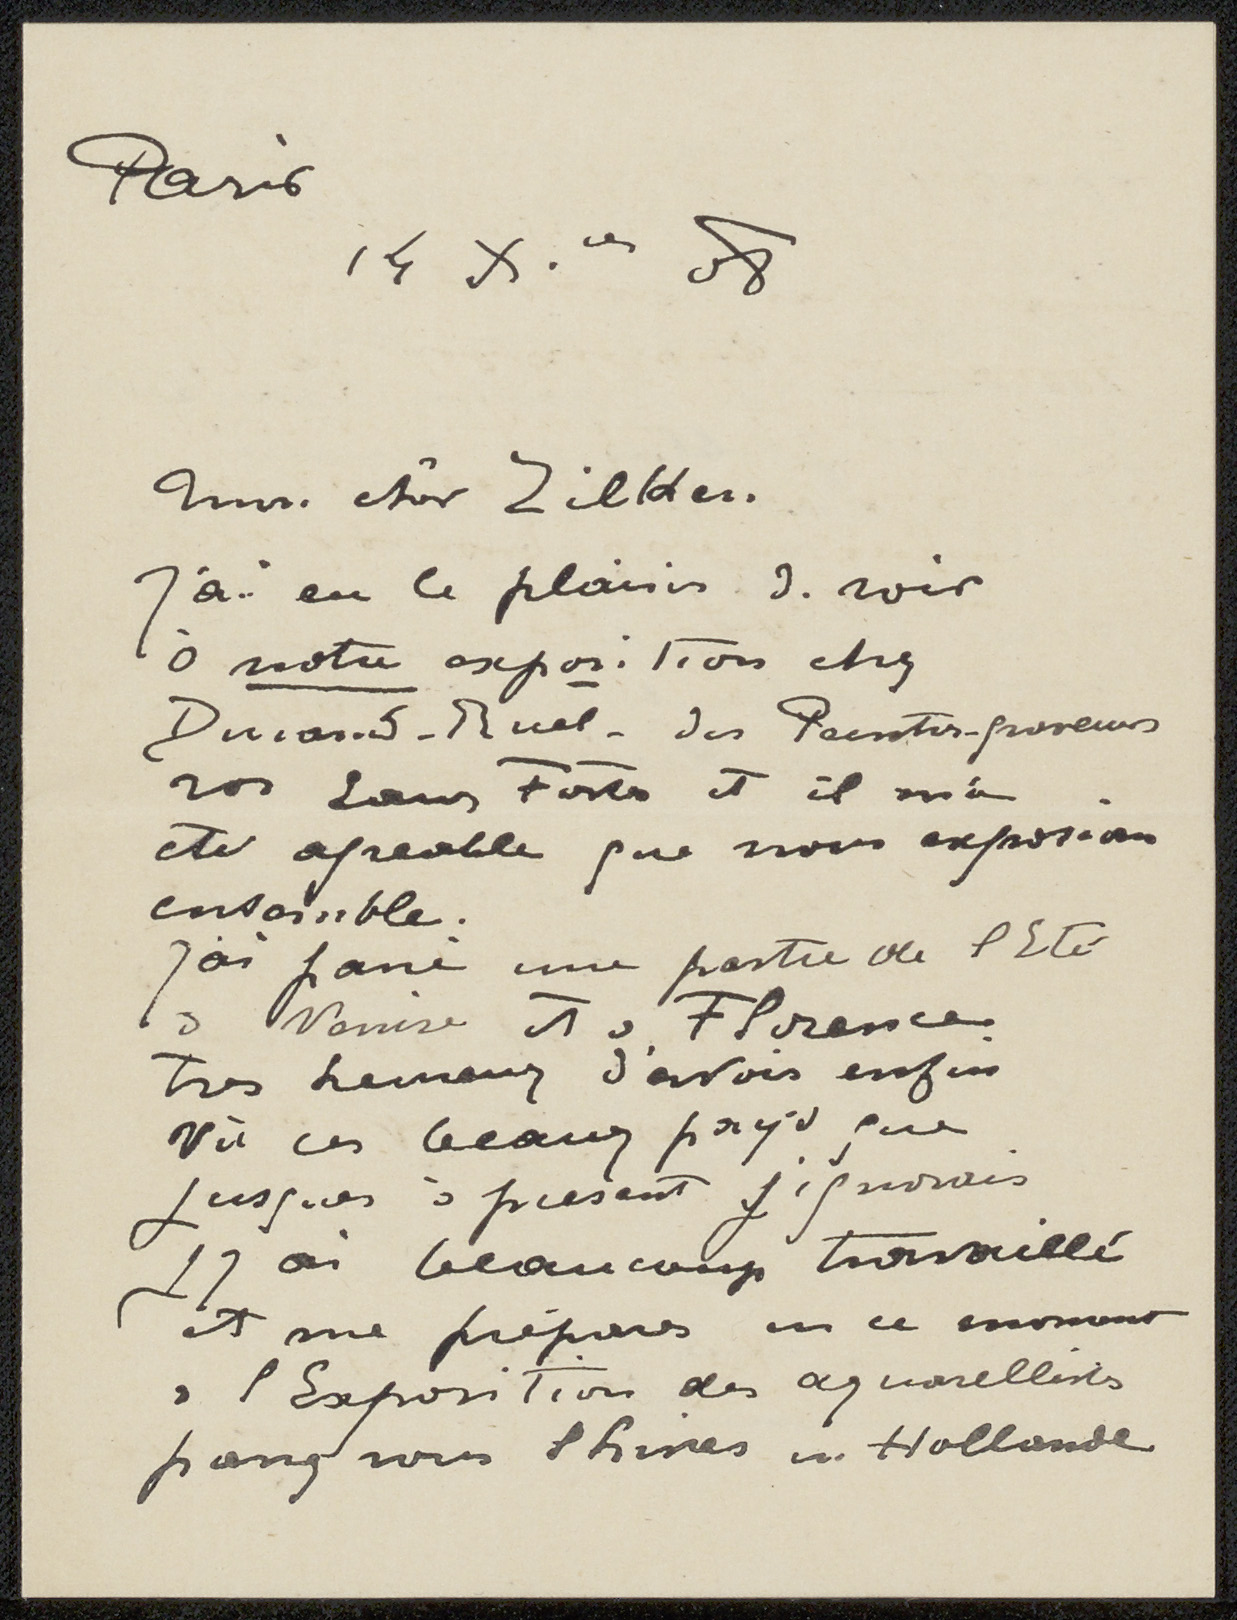 Paris
14 X.es 08
Mon cher Zilken.
J'ai eu le plaisir de voir
à notre exposition chez
Durand-Ruel - des Peintres-graveurs
vos Eaux Fortes et il m'a
été agreable que nous exposions
ensemble.
J'ai passé une partie de l'Eté
à Venise et à Florence
tres heureux d'avoir enfin
vû ces beaux pays que
jusques à present j'ignorais
J'y ai beaucoup travaillé
et me prépares en ce moment
à l'Exposition des aquarellistes
passez vous l'hiver en Hollande